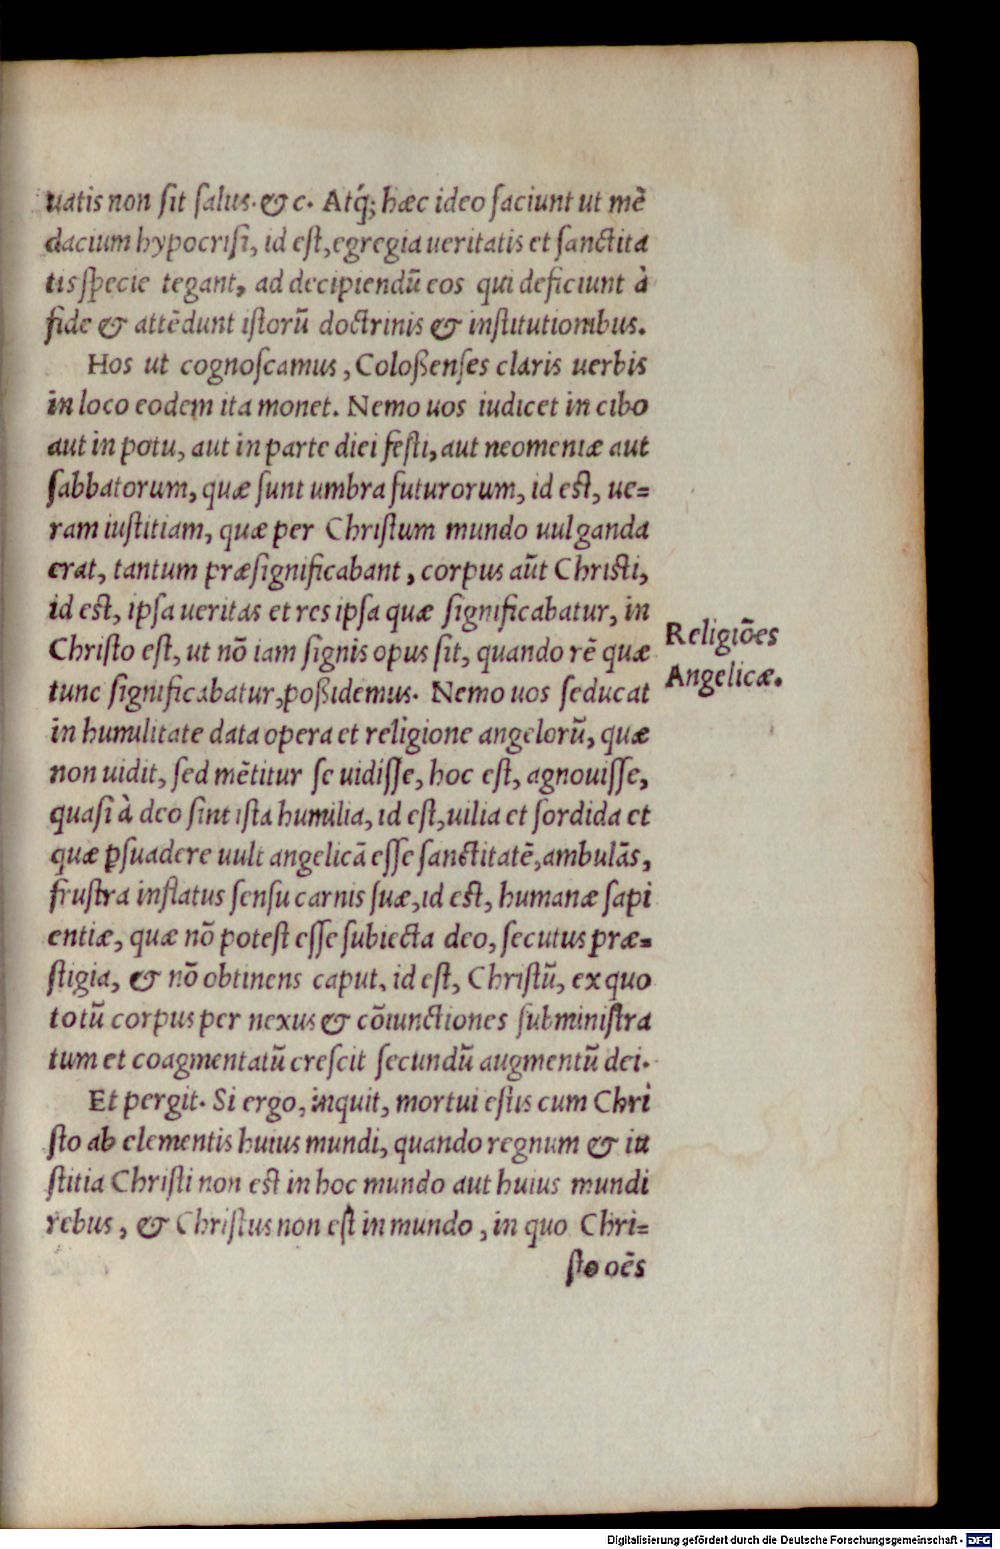 uatis non ſit ſalus. & c. Atq́; hæc ideo faciunt ut mē
dacium hypocriſi, id eſt, egregia ueritatis et ſanctita
tis ſpecie tegant, ad decipiendū eos qui deficiunt à
fide & attēdunt iſtorū doctrinis & inſtitutionibus.
Hos ut cognoſcamus, Coloßenſes claris uerbis
in loco eodem ita monet. Nemo uos iudicet in cibo
aut in potu, aut in parte diei feſti, aut neomeniæ aut
ſabbatorum, quæ ſunt umbra futurorum, id eſt, ue=
ram iuſtitiam, quæ per Chriſtum mundo uulganda
erat, tantum præſignificabant, corpus aūt Chriſti,
id eſt, ipſa ueritas et res ipſa quæ ſignificabatur, in
Chriſto eſt, ut nō iam ſignis opus ſit, quando rē quæ
tunc ſignificabatur, poßidemus. Nemo uos ſeducat
in humilitate data opera et religione angelorū, quæ
non uidit, ſed mētitur ſe uidiſſe, hoc eſt, agnouiſſe,
quaſi à deo ſint iſta humilia, id eſt, uilia et ſordida et
quæ ꝑſuadere uult angelicā eſſe ſanctitatē, ambulās,
fruſtra inflatus ſenſu carnis ſuæ, id eſt, humanæ ſapi
entiæ, quæ nō poteſt eſſe ſubiecta deo, ſecutus præ=
ſtigia, & nō obtinens caput, id eſt, Chriſtū, ex quo
totū corpus per nexus & cōiunctiones ſubminiſtra
tum et coagmentatū creſcit ſecundū augmentū dei.
Et pergit. Si ergo, inquit, mortui eſtis cum Chri
ſto ab elementis huius mundi, quando regnum & iu
ſtitia Chriſti non eſt in hoc mundo aut huius mundi
rebus, & Chriſtus non eſt in mundo, in quo Chri=
ſto oēs
Religiōes
Angelicæ.
Digitalisierung gefördert durch die Deutsche Forschungsgemeinschaft - DFG